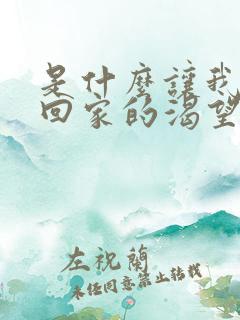 是什麼讓我
回家的渴望
左祝蘭
未经同意禁止转载